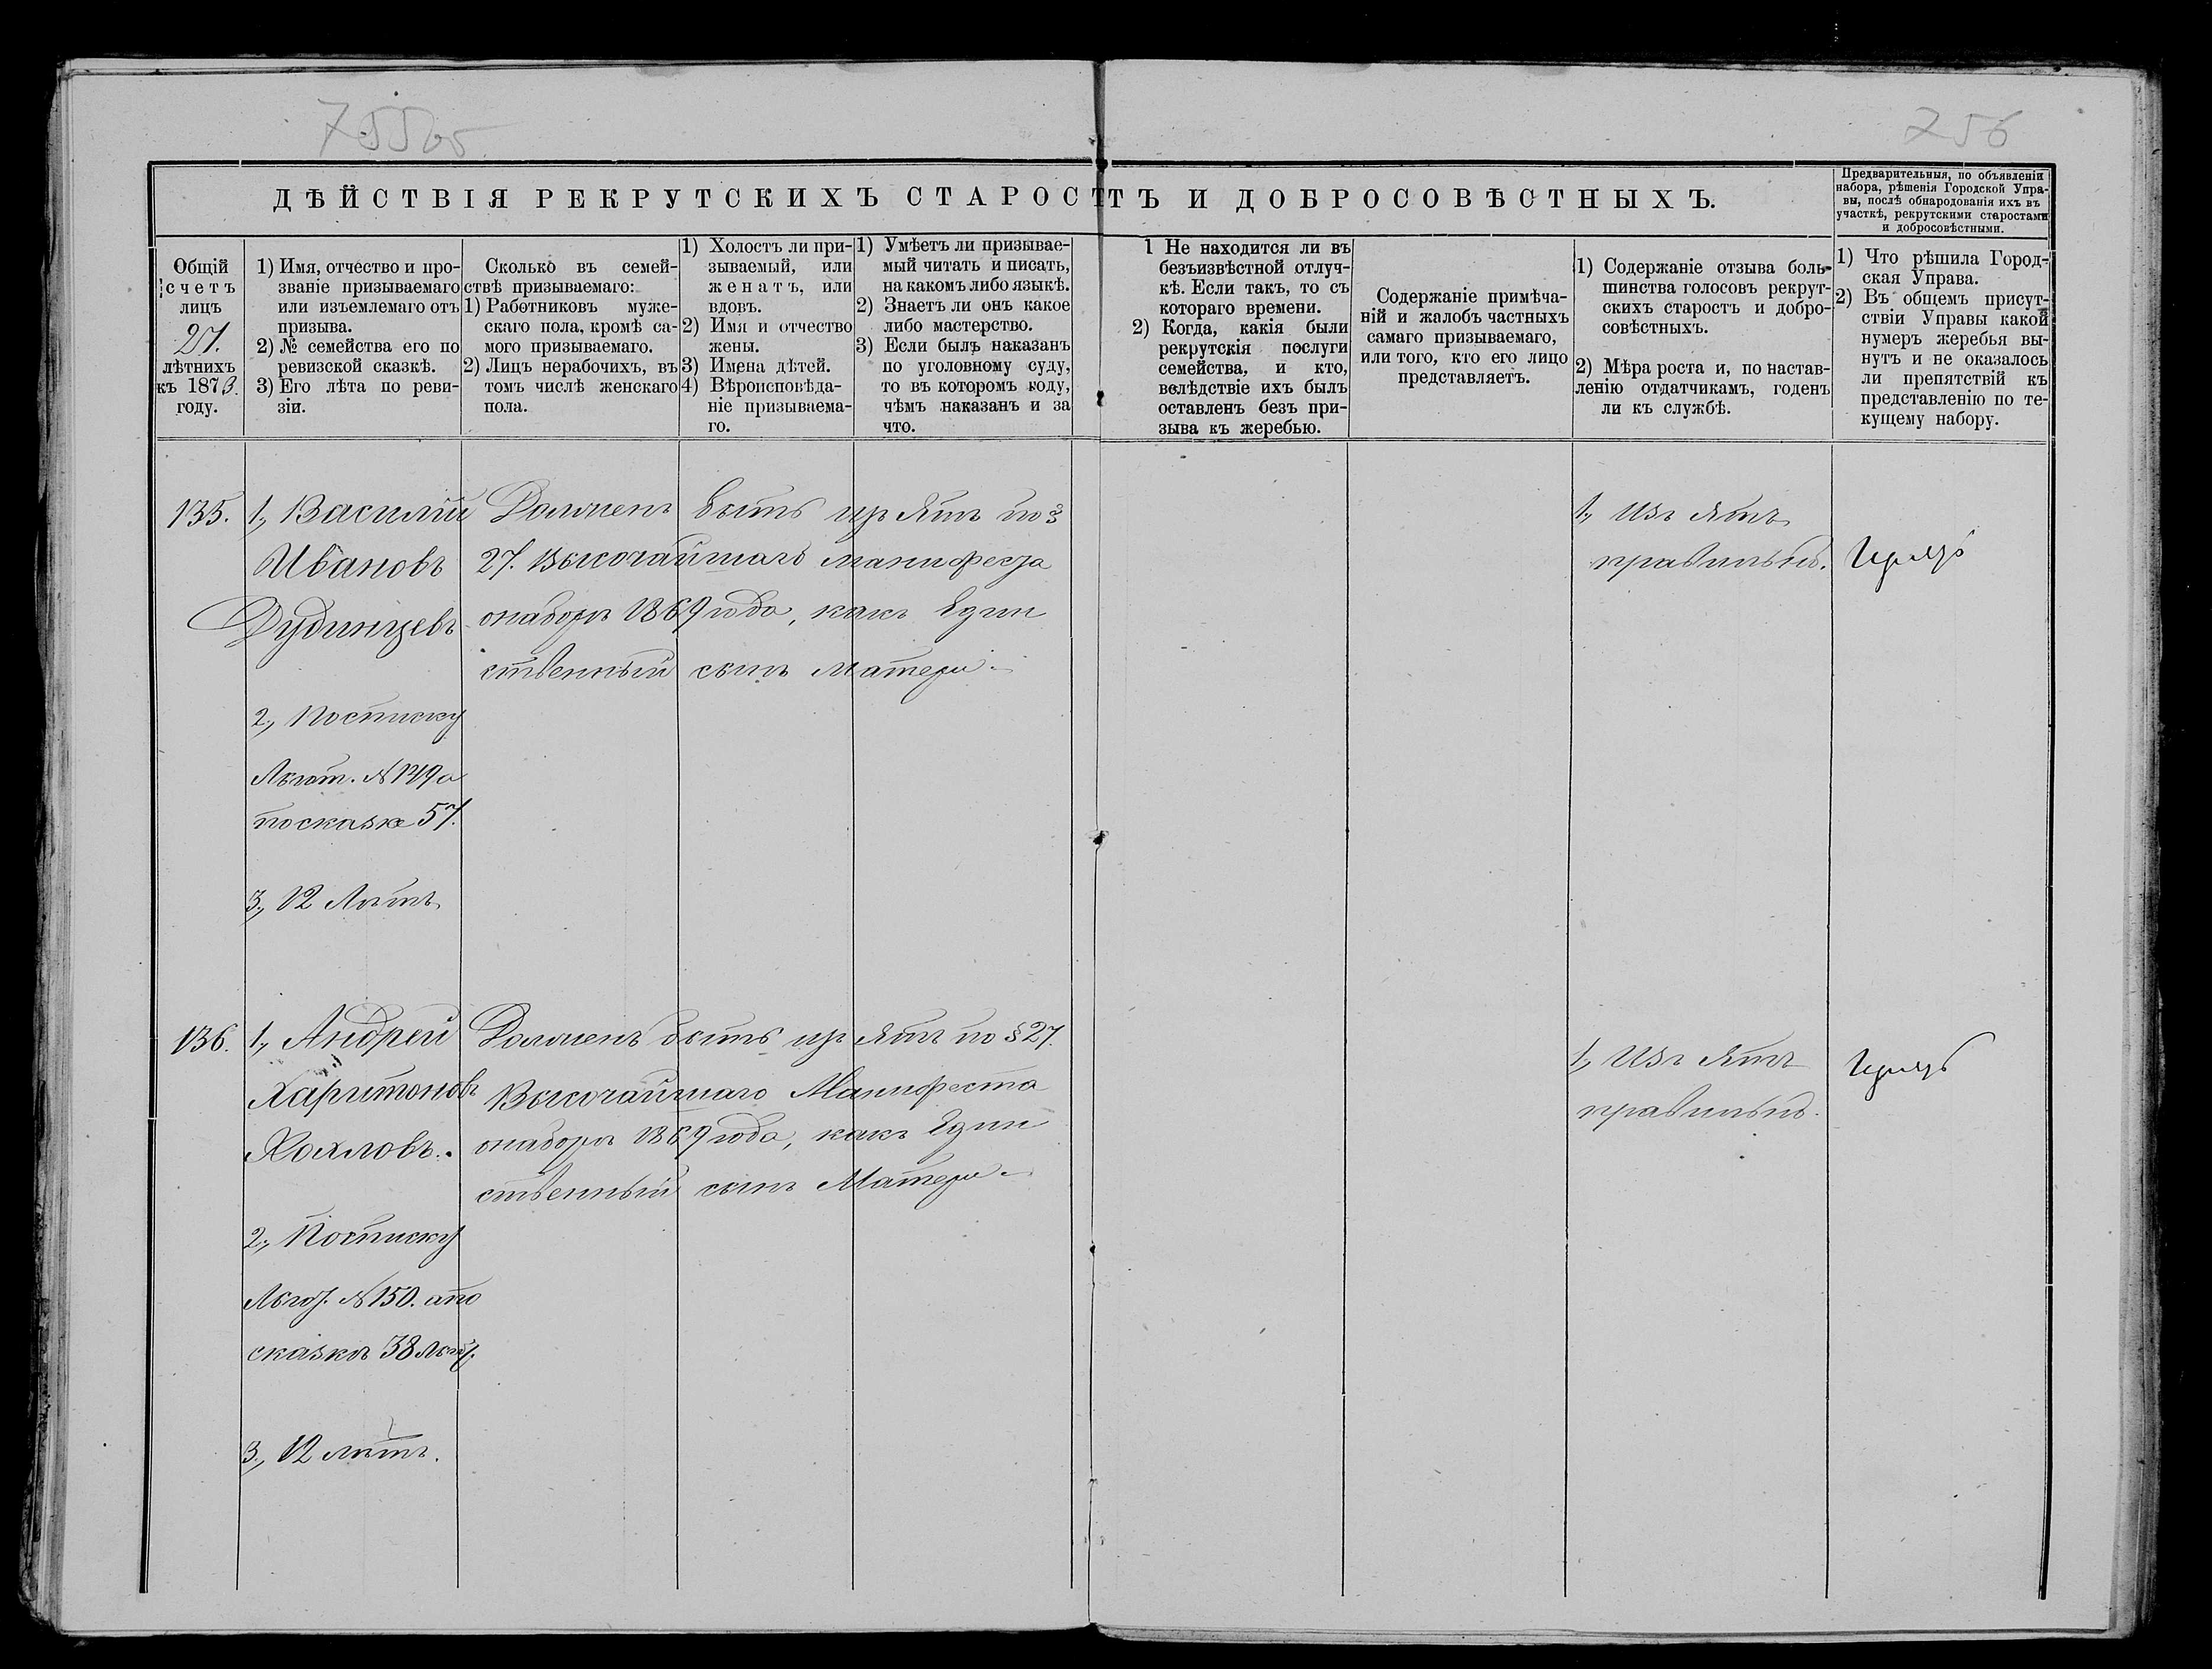 755об
256
ДѢЙСТВІЯ РЕКРУТСКИХЪ СТАРОСТЪ И ДОБРОСОВѢСТНЫХЪ.
Предварительныя, по объявленіи
набора, рѣшенія Городской Упра-
вы, послѣ обнародованія ихъ въ
участкѣ, рекрутскими старостами
и добросовѣстными.
Общій
счетъ
лицъ
27.
лѣтнихъ
къ 1873.
году.
1) Имя, отчество и про-
званіе призываемаго
или изъемлемаго отъ
призыва.
2) № семейства его по
ревизской сказкѣ.
3) Его лѣта по реви-
зіи.
Сколько въ семей-
ствѣ призываемаго:
1) Работниковъ муже-
скаго пола, кромѣ са-
мого призываемаго.
2) Лицъ нерабочихъ, въ
томъ числѣ женскаго
пола.
1) Холостъ ли при-
зываемый, или
женатъ, или
вдовъ.
2) Имя и отчество
жены.
3) Имена дѣтей.
4) Вѣроисповѣда-
ніе призываема-
го.
1) Умѣетъ ли призывае-
мый читать и писать,
на какомъ либо языкѣ.
2) Знаетъ ли онъ какое
либо мастерство.
3) Если былъ наказанъ
по уголовному суду,
то въ которомъ году,
чѣмъ наказанъ и за
что.
1 Не находится ли въ
безъизвѣстной отлуч-
кѣ. Если такъ, то съ
котораго времени.
2) Когда, какія были
рекрутскія послуги
семейства, и кто,
вслѣдствіе ихъ былъ
оставленъ безъ при-
зыва къ жеребью.
Содержаніе примѣча-
ній и жалобъ частныхъ
самаго призываемаго,
или того, кто его лицо
представляетъ.
1) Содержаніе отзыва боль-
шинства голосовъ рекрут-
скихъ старостъ и добро-
совѣстныхъ.
2) Мѣра роста и, по настав-
ленію отдатчикамъ, годенъ
ли къ службѣ.
1) Что рѣшила Город-
ская Управа.
2) Въ общемъ присут-
ствіи Управы какой
нумеръ жеребья вы-
нутъ и не оказалось
ли препятствій къ
представленію по те-
кущему набору.
135.
1, Василій
Ивановъ
Дудинцевъ
2, Посписку
Льгот. № 149 а
посказке 57.
3, 12 Лѣтъ
Долженъ быть изъятъ по §
27. Высочайшаго манифеста
онаборѣ 1869 года, какъ Един
ственный сынъ Матери
1, Изъятъ
правильно.
136.
1, Андрей
Харитоновъ
Хохловъ.
2, Посписку
Льгот. № 150. апо
сказкѣ 38 льгот.
3, 12 лѣтъ.
Долженъ быть изъятъ по § 27.
Высочайшаго Манифеста
онаборѣ 1869 года, какъ Един
ственный сынъ Матери
1, Изъятъ
правильно.